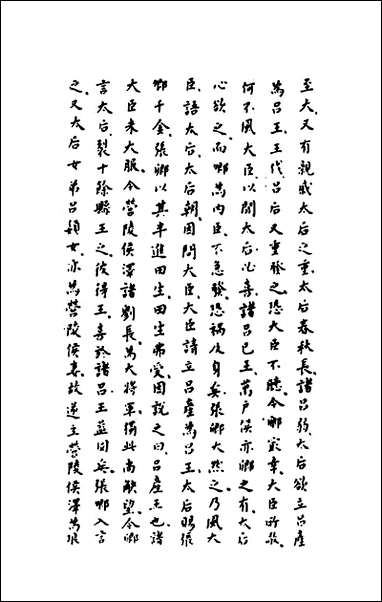 至大又有親戚太后之重太后春秋長諸呂弱太后欲立呂產
為呂王王代呂后又重發之恐大臣不聽今卿最幸大臣所敬
何不風大臣以聞太后必喜諸呂已王萬戶侯亦卿之有太后
心欲之而卿為內臣不急發恐禍及身矣張卿大然之乃風大
臣語太后太后朝因問大臣大臣請立呂產為呂王太后賜張
卿千金張卿以其半進田生田生弗受因說之曰呂產王也諸
大臣未大服今營陵侯澤諸劉長為大將軍獨此尚觖望今卿
言太后裂十餘縣王之彼得王喜於諸呂王益固矣張卿入言
之又太后女弟呂嬃女亦為營陵侯妻故遂立營陵侯澤為琅